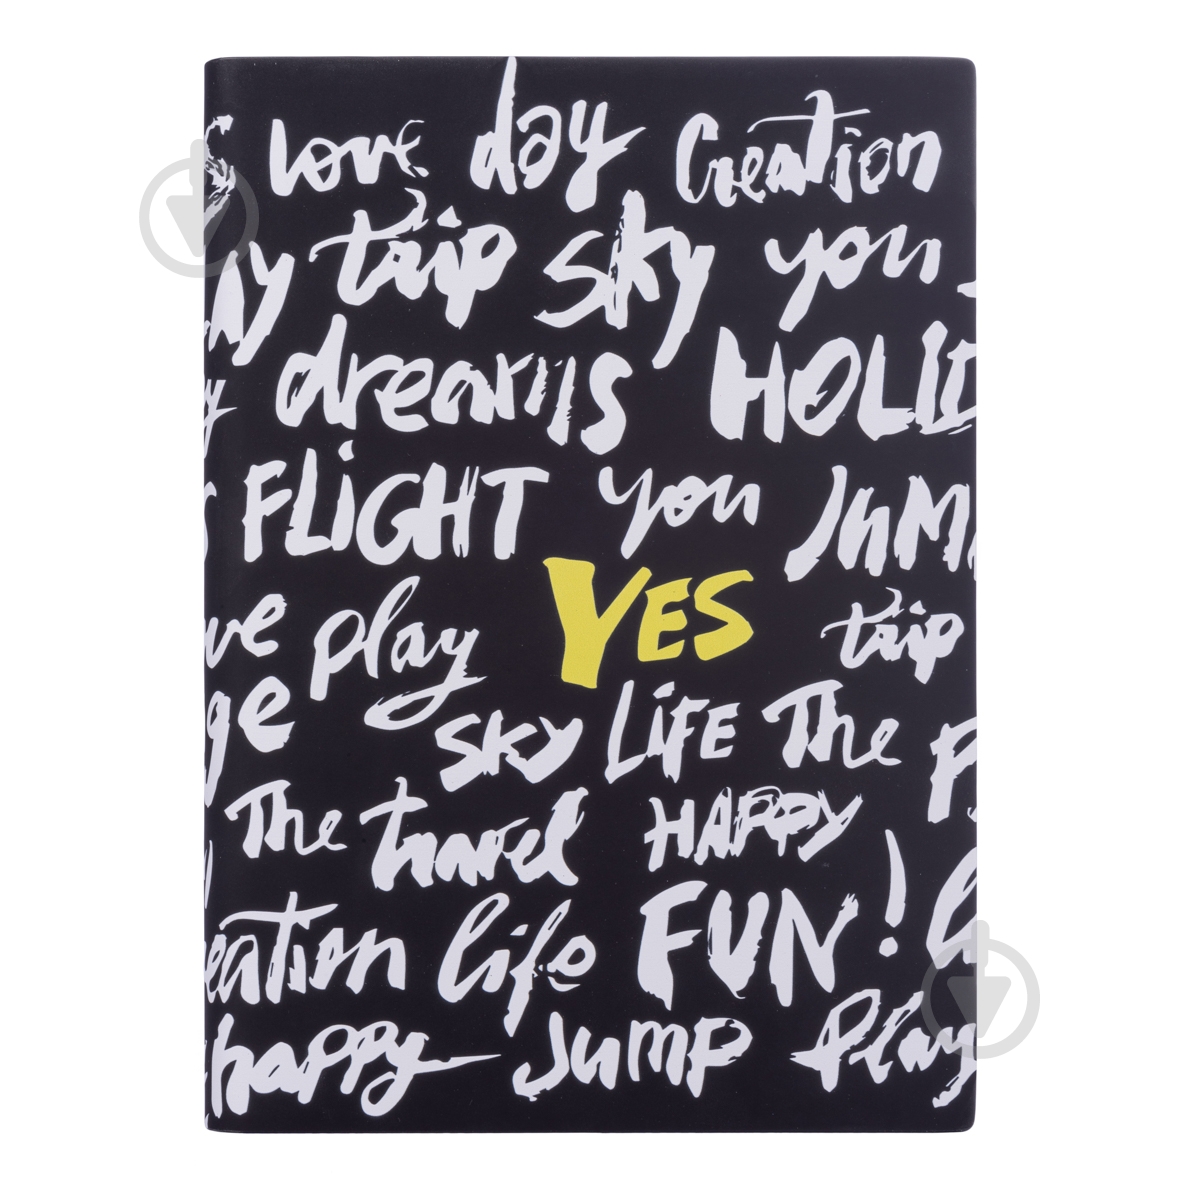 love day Creation
trip sky you
dreams HOLID
FLiGHT you JUM
ve play YES trip
ge SKY LiFE The P
The travel HAPPY
eation life FUN!
happy Jump Play